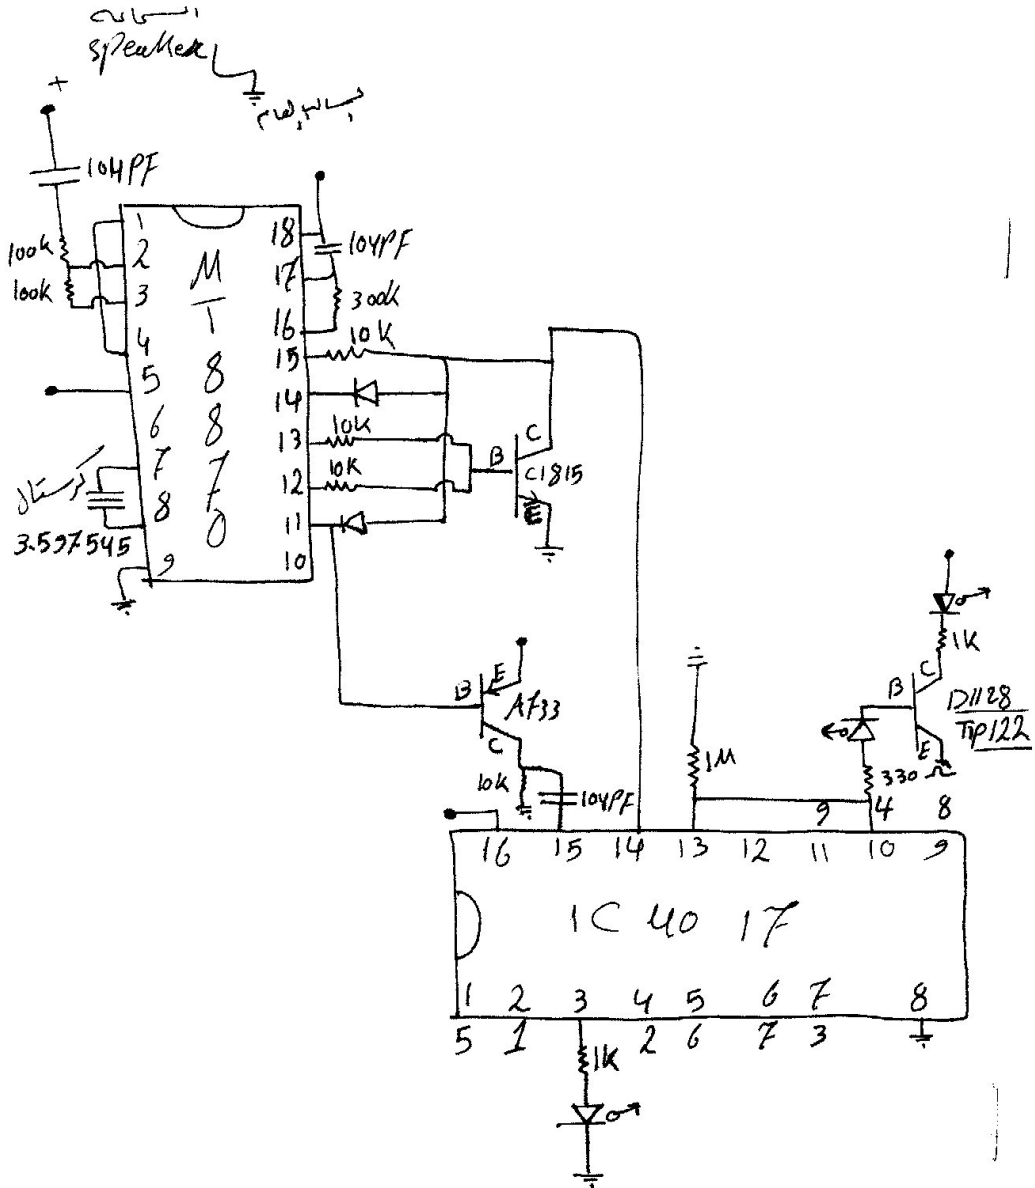 speaker
+
104PF
100k
100k
1
2
3
4
5
6
7
8
9
MT8870
18
17
16
15
14
13
12
11
10
104PF
300k
10K
10k
10k
كرستال
3.597545
B
C
C1815
E
B
E
A733
C
10k
104PF
1M
1K
B
C
D1128
TIP122
E
330Ω
9
4
8
16
15
14
13
12
11
10
9
IC 4017
1
2
3
4
5
6
7
8
5
1
2
6
7
3
1K